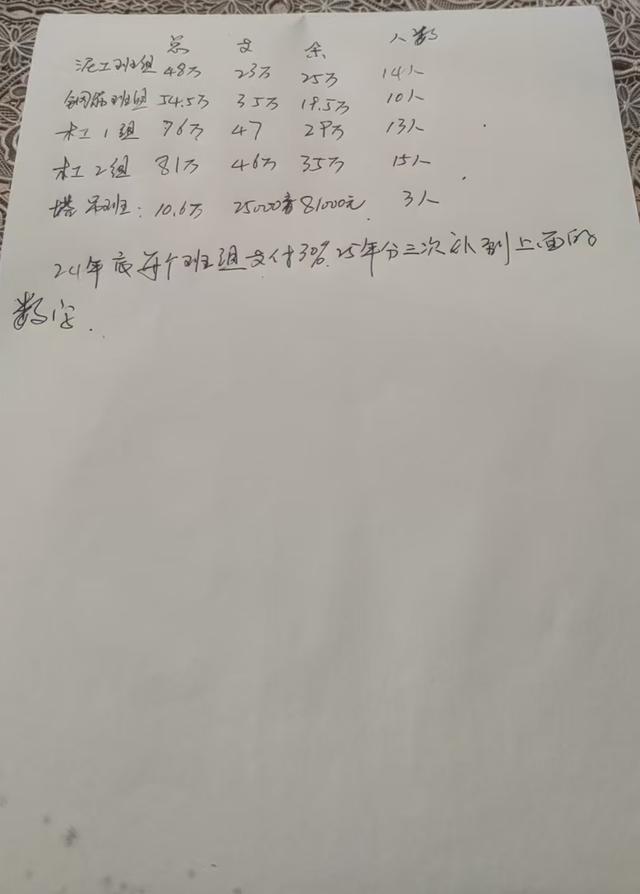 总 支 余 人数
泥工班组 48万 23万 25万 14人
钢筋班组 54.5万 35万 19.5万 10人
木工1组 76万 47 29万 13人
木工2组 81万 46万 35万 15人
塔吊班: 10.6万 25000 81000元 3人
24年底每个班组支付30%.25年分三次补到上面的
数字.